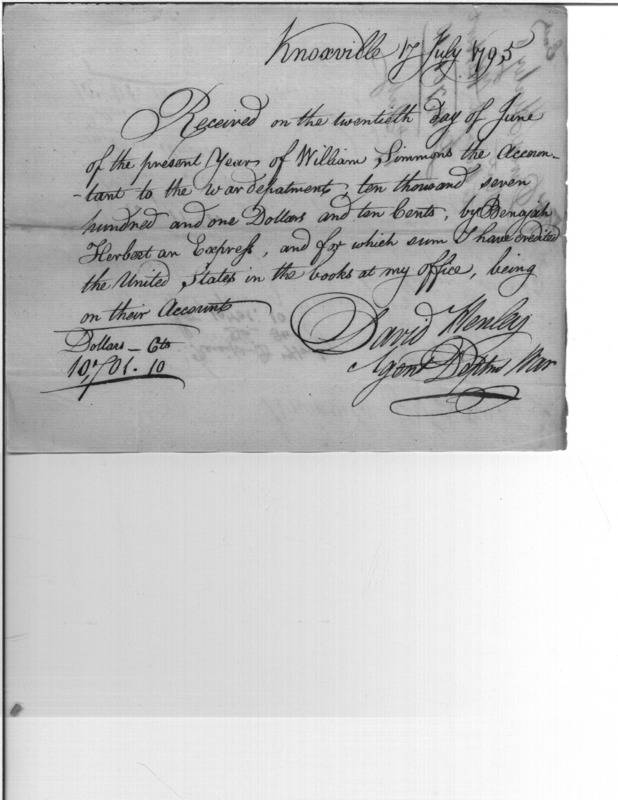 Knoxville 17 July 1795
Received on the twentieth day of June
of the present Year, of William Simmons the Accoun-
-tant to the war depatment, ten thousand seven
hundred and one Dollars and ten Cents, by Benajah
Herbert an Express, and for which sum I have credited
the United States in the books at my office, being
on their Account
Dollars - Cts
10,701. 10
David Henley
Agent Deptmt War